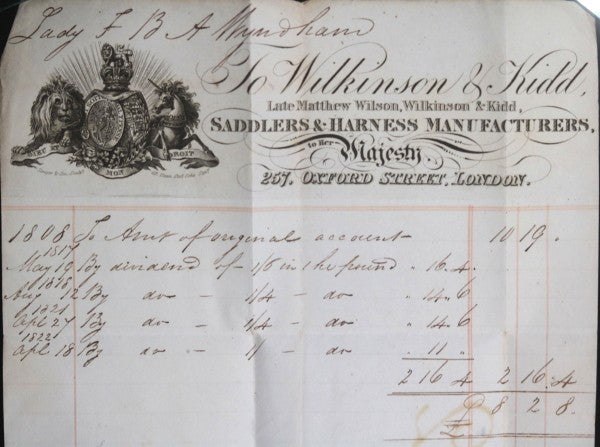 Lady F B A Wyndham
To Wilkinson & Kidd,
Late Matthew Wilson, Wilkinson & Kidd,
SADDLERS & HARNESS MANUFACTURERS,
to Her
Majesty.
257, OXFORD STREET, LONDON.
DIEU ET MON DROIT
1808 To Amt of original account 10 19 "
1817
May 19 By dividend of 1/6 in the pound " 16 .4
1818
Aug 12 By do - 1/4 - do " 14 .6
1821
Apl 27 By do - 1/4 - do " 14 .6
1822
Apl 18 By do - 1/ - do " 11 "
2 16 4 2 16 .4
£ 8 2 8